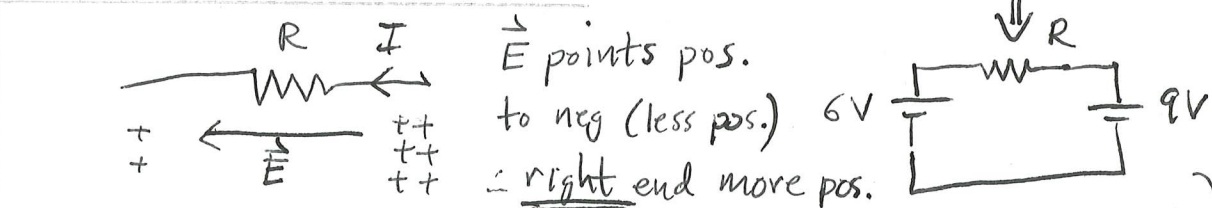 R I
E⃗ points pos.
to neg (less pos.)
∴ right end more pos.
+
+
E⃗
++
++
++
R
6V
9V